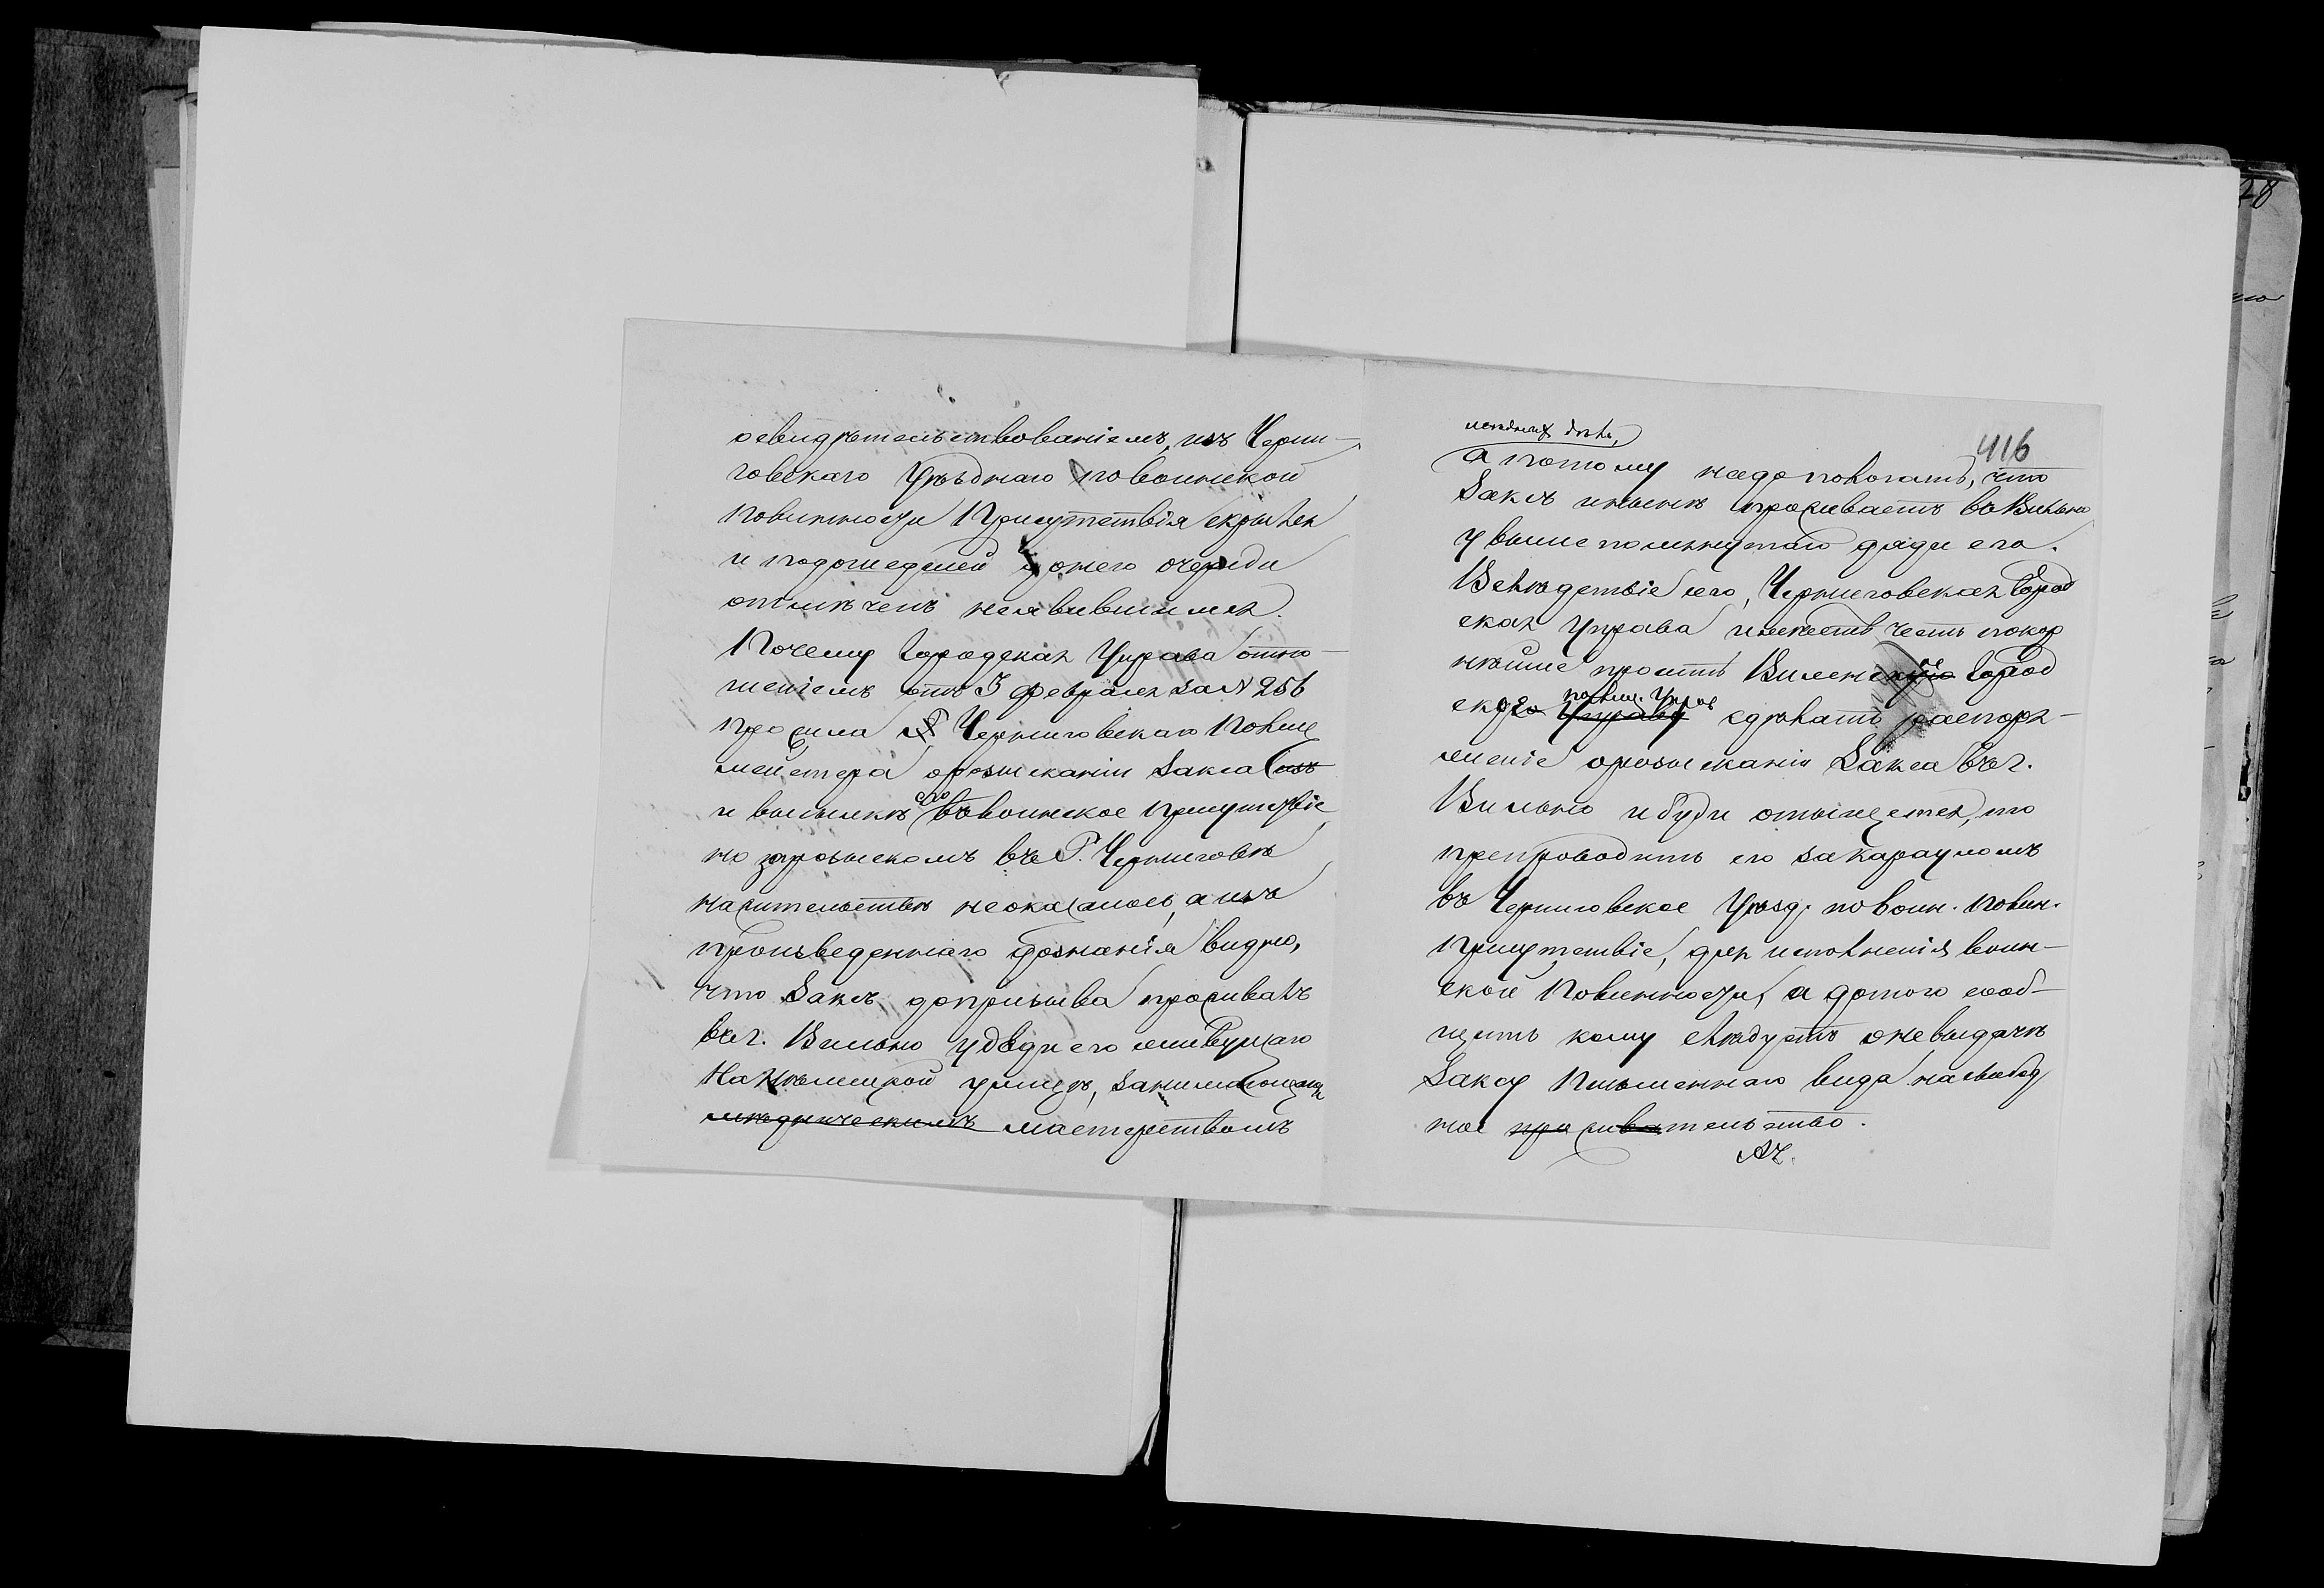 освидѣтельствованіемъ, изъ Черни-
говскаго Уѣзднаго по воинской
повинности Присутствія скрылся
и по дошедшей до него очереди
отмѣченъ неявившимся.
Почему Городская Управа отно-
шеніемъ отъ 3 февраля за № 256
просила Черниговскаго Полиц
мейстера о розысканіи Закса изъ
и высылкѣ его въ воинское присутствіе
но розыскомъ въ Г. Черниговѣ
на жительствѣ не оказалось, а изъ
произведеннаго дознанія видно,
что Заксъ до призыва проживалъ
въ г. Вильно у дяди его живущаго
На Нѣмецкой улицѣ, занимающагося
мѣдническимъ мастерствомъ
416
а потому надо полагать, что
Заксъ и нынѣ проживаетъ въ Вильно
у вышепомянутаго дяди его.
Вслѣдствіе сего, Черниговская Город
ская Управа имѣетъ честь покор
нѣйше просить Виленскую Город
скую Управу полиц. Управ сдѣлать распоря-
женіе о розысканіи Закса въ г.
Вильно и буде отыщется, то
препроводить его за карауломъ
въ Черниговское Уѣзд. по воин. повин.
присутствіе, для исполненія воин-
ской повинности, а до того сооб-
щить кому слѣдуетъ о невыдачѣ
Заксу письменнаго вида на свобод
ное жительство.
28